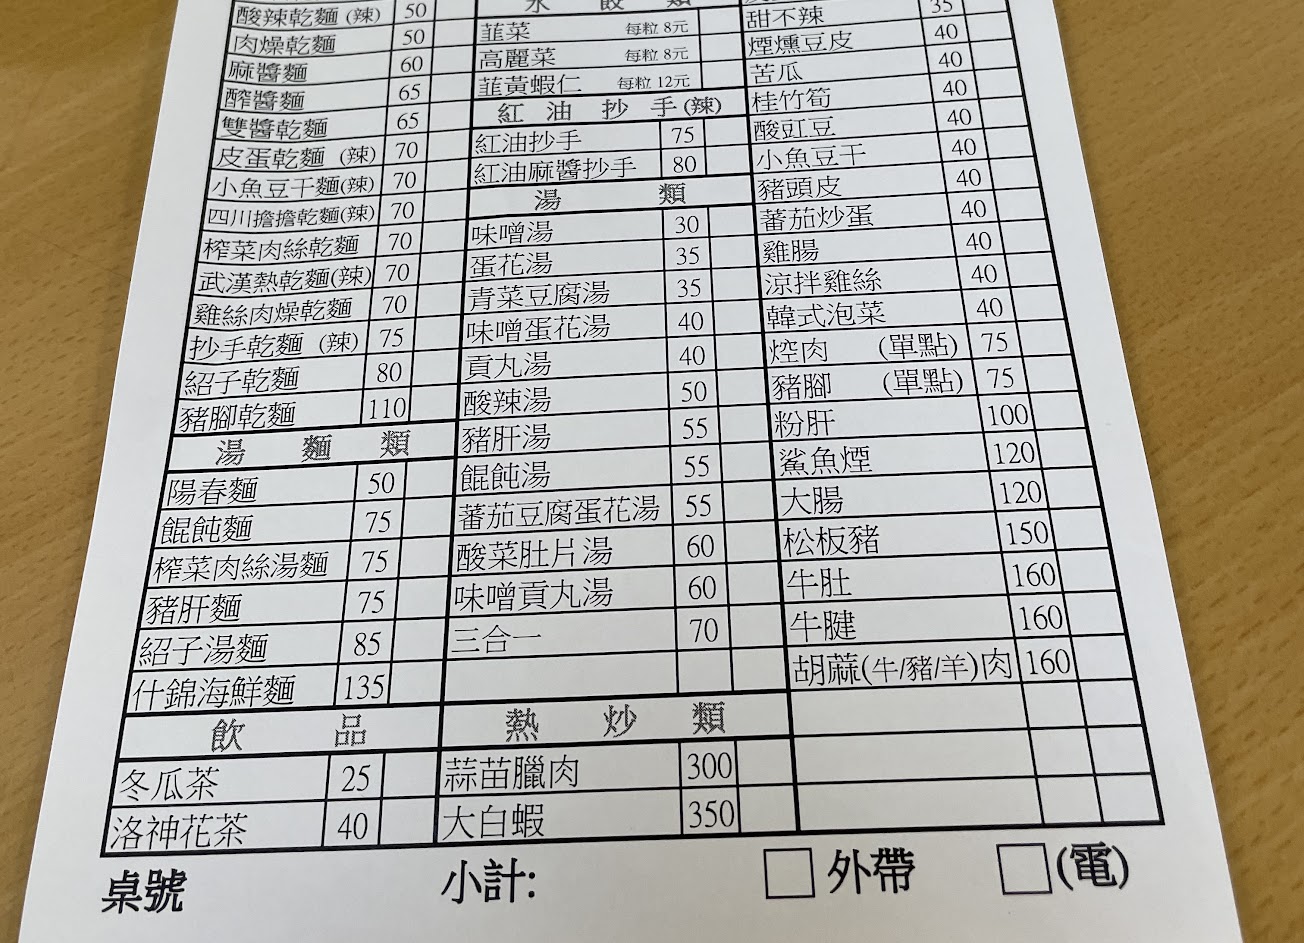 酸辣乾麵(辣) 50
肉燥乾麵 50
麻醬麵 60
醡醬麵 65
雙醬乾麵 65
皮蛋乾麵 (辣) 70
小魚豆干麵(辣) 70
四川擔擔乾麵(辣) 70
榨菜肉絲乾麵 70
武漢熱乾麵(辣) 70
雞絲肉燥乾麵 70
抄手乾麵 (辣) 75
紹子乾麵 80
豬腳乾麵 110
湯 麵 類
陽春麵 50
餛飩麵 75
榨菜肉絲湯麵 75
豬肝麵 75
紹子湯麵 85
什錦海鮮麵 135
飲 品
冬瓜茶 25
洛神花茶 40
水 餃 類
韮菜 每粒 8元
高麗菜 每粒 8元
韮黃蝦仁 每粒 12元
紅 油 抄 手(辣)
紅油抄手 75
紅油麻醬抄手 80
湯 類
味噌湯 30
蛋花湯 35
青菜豆腐湯 35
味噌蛋花湯 40
貢丸湯 40
酸辣湯 50
豬肝湯 55
餛飩湯 55
蕃茄豆腐蛋花湯 55
酸菜肚片湯 60
味噌貢丸湯 60
三合一 70
熱 炒 類
蒜苗臘肉 300
大白蝦 350
甜不辣 35
煙燻豆皮 40
苦瓜 40
桂竹筍 40
酸豇豆 40
小魚豆干 40
豬頭皮 40
蕃茄炒蛋 40
雞腸 40
涼拌雞絲 40
韓式泡菜 40
焢肉 (單點) 75
豬腳 (單點) 75
粉肝 100
鯊魚煙 120
大腸 120
松板豬 150
牛肚 160
牛腱 160
胡蔴(牛/豬/羊)肉 160
桌號 小計: 外帶 (電)